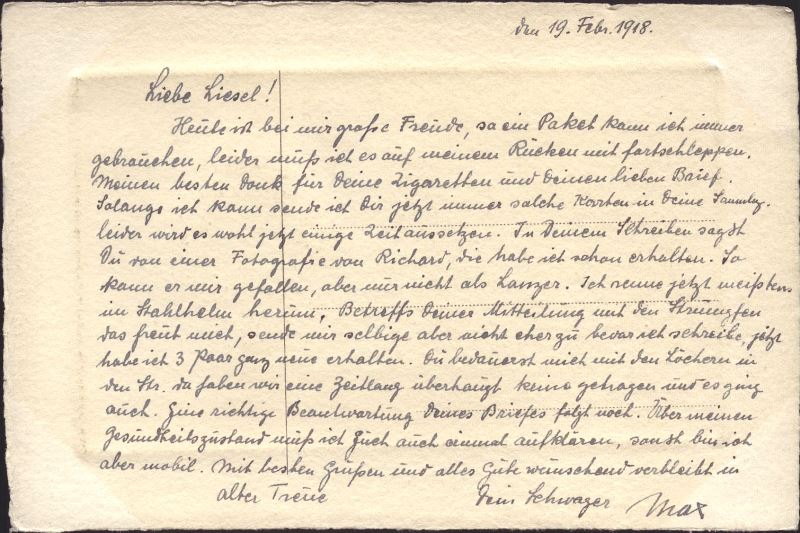 den 19. Febr. 1918.
Liebe Liesel!
Heute ist bei mir große Freude, so ein Paket kann ich immer
gebrauchen, leider muß ich es auf meinem Rücken mit fortschleppen.
Meinen besten Dank für Deine Zigaretten und Deinen lieben Brief.
Solange ich kann sende ich Dir jetzt immer solche Karten in Deine Sammlg.
leider wird es wohl jetzt einige Zeit aussetzen. In Deinem Schreiben sagst
Du von einer Fotografie von Richard, die habe ich schon erhalten. So
kann er mir gefallen, aber nur nicht als Lanzer. Ich renne jetzt meistens
im Stahlhelm herum. Betreffs Deiner Mitteilung mit den Strümpfen
das freut mich, sende mir selbige aber nicht eher zu bevor ich schreibe, jetzt
habe ich 3 Paar ganz neue erhalten. Du bedauerst mich mit den Löchern in
den Str. da haben wir eine Zeitlang überhaupt keine getragen und es ging
auch. Eine richtige Beantwortung Deines Briefes folgt noch. Über meinen
Gesundheitszustand muß ich Euch auch einmal aufklären, sonst bin ich
aber mobil. Mit besten Grüßen und alles Gute wünschend verbleibt in
alter Treue Dein Schwager Max